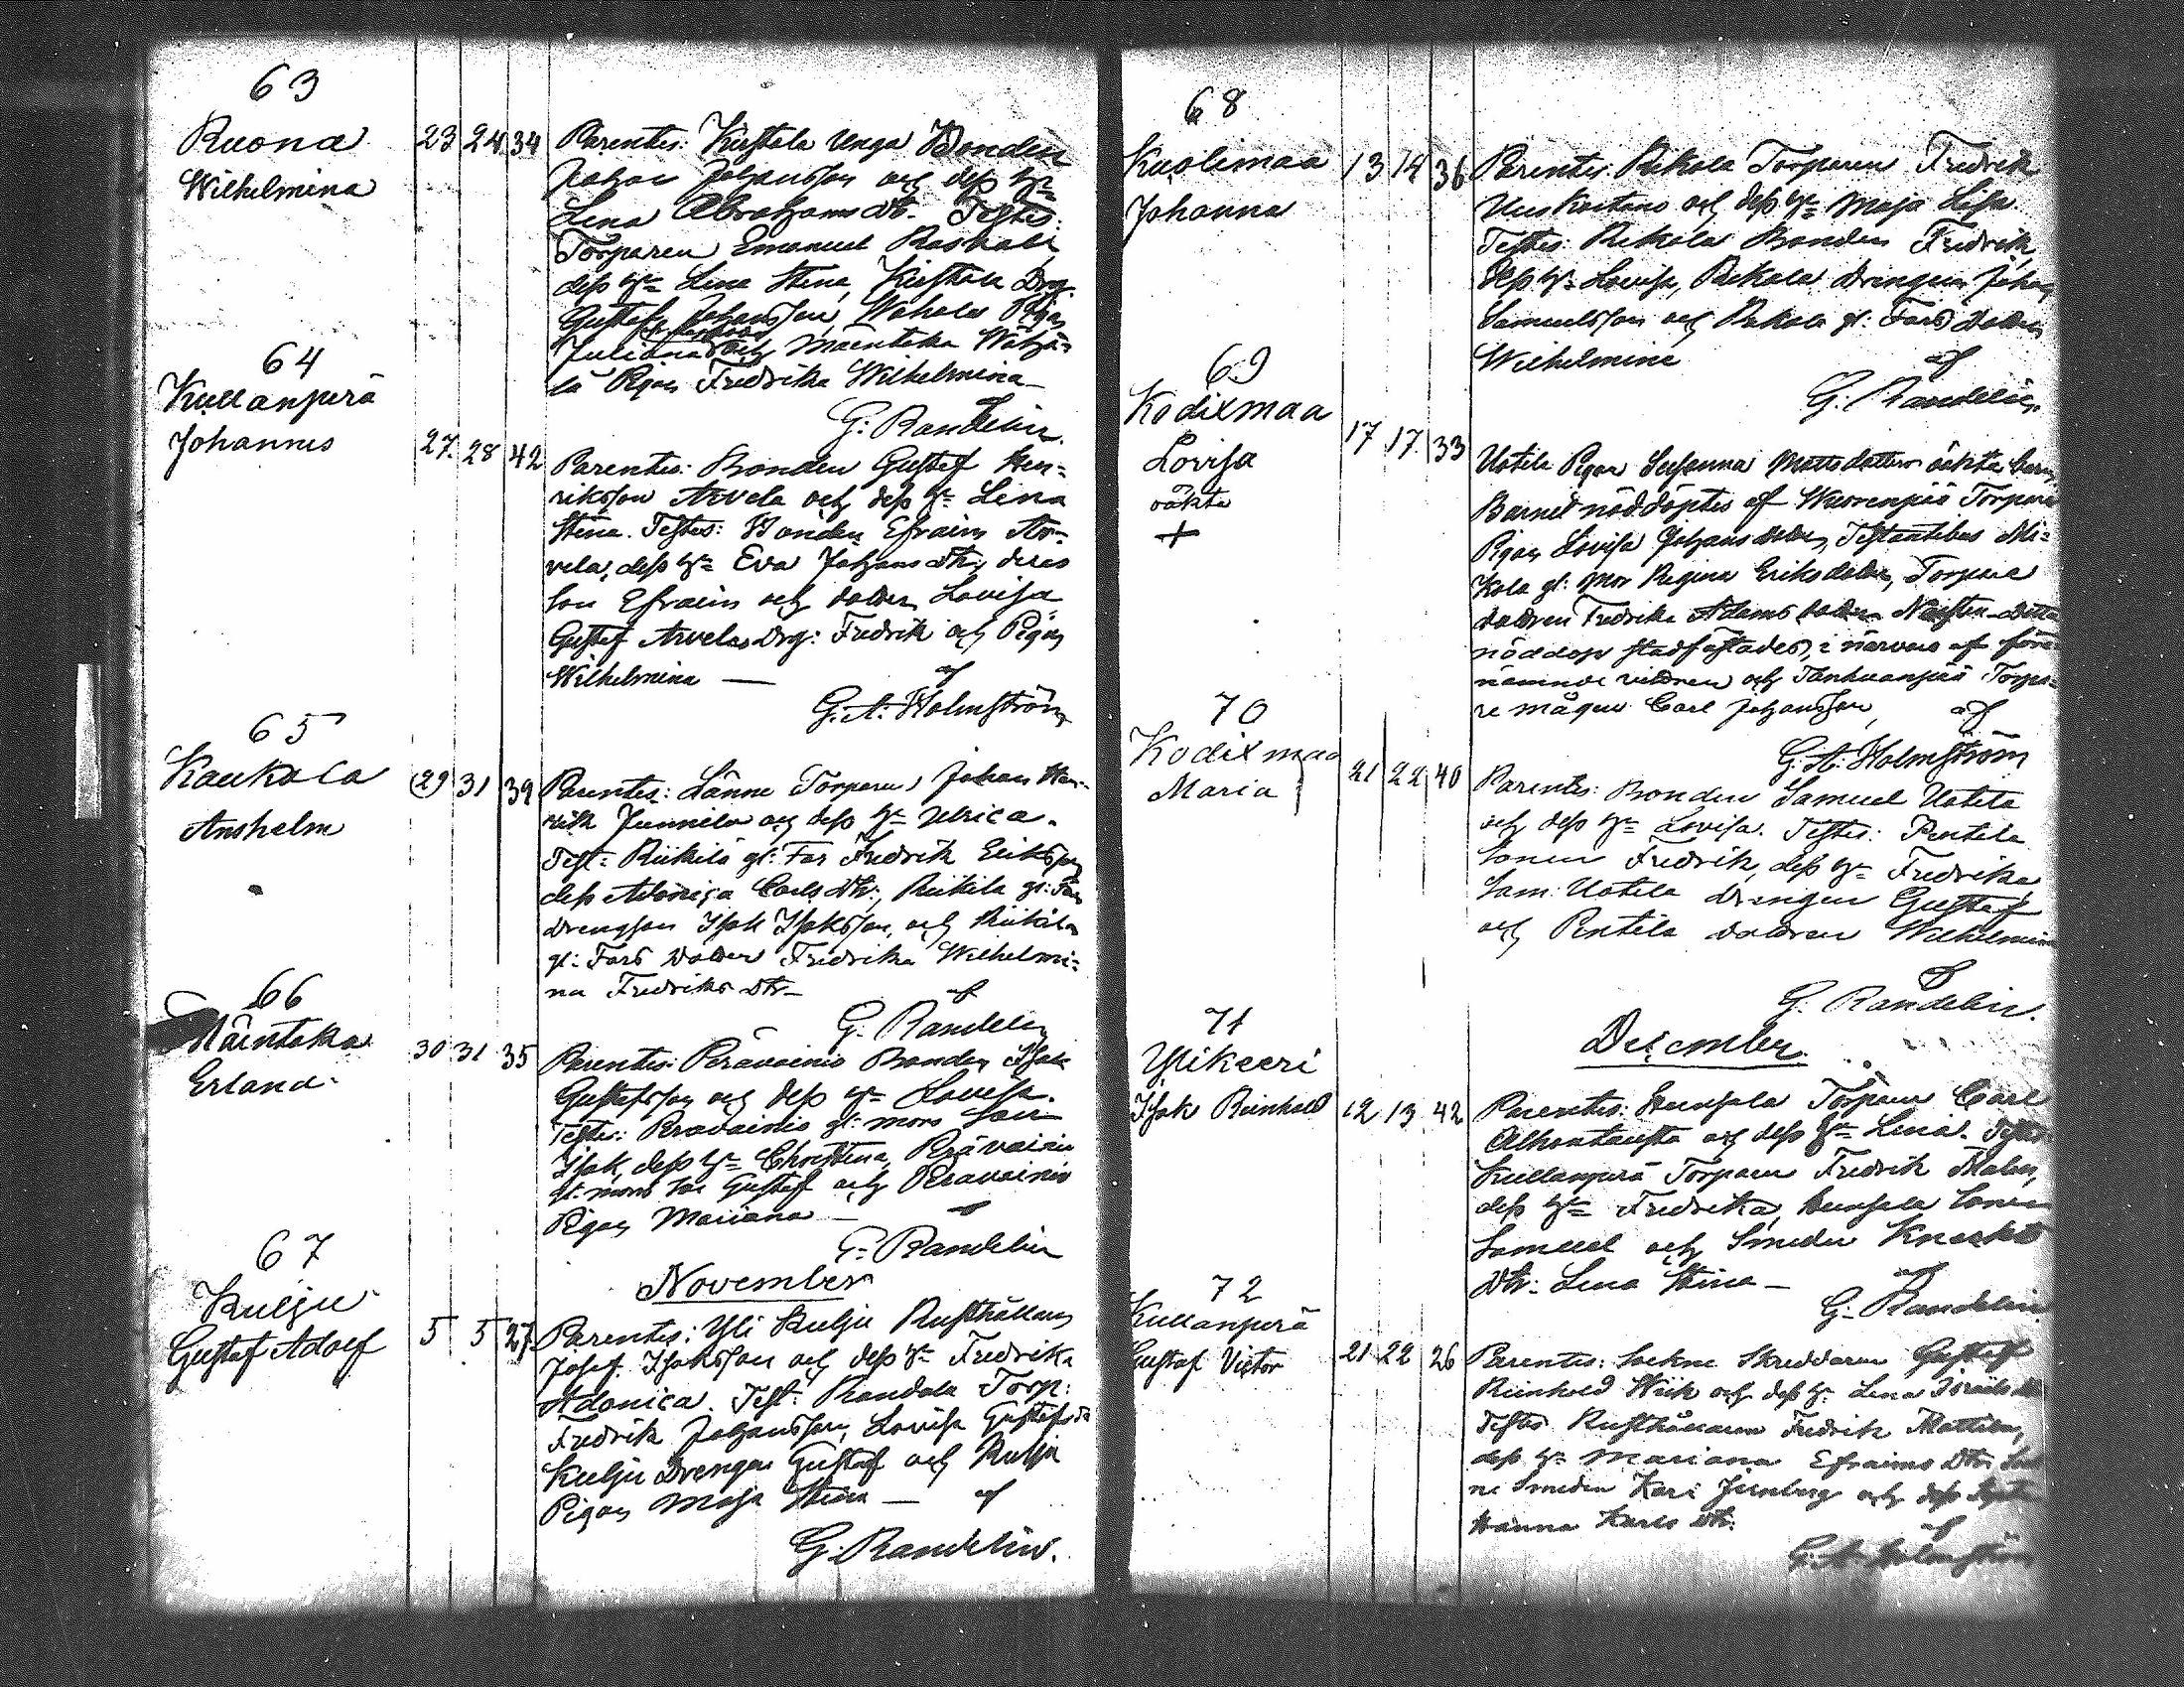 63
Ruona 23 24 34 Parentes: Kustela Unga Bonden
Wilhelmina Johan Johansson och dess h:u
Lena Abrahams dtr. Testes:
Torparen Emanuel
dess h:u Lena Stina, Drg.
Gustaf Johansson, Pigan
Juliana och Mäentaka
lä Pigan Fredrika Wilhelmina
G: Randelin.
64
Kullanperä
Johannes 27. 28 42 Parentes: Bonden Gustaf Hen-
riksson Arvela och dess h:u Lena
Stina. Testes: Bonden Efraim Ar-
vela, dess h:u Eva Johans dtr, deras
son Efraim och dottern Lovisa
Gustaf Arvelas Drg: Fredrik och Pigan
Wilhelmina — af
G. A. Holmström
65
Kaukola 29 31 39 Parentes: Länne Torparen Johan Hen-
Anshelm rik Junnila och dess h:u Ulrica.
Test: Riikilä gl: Far Fredrik Eriksson
dess Carls dtr:, Riikilä gl: Fars
Isak Isaksson, och Riikilä
gl: Fars dotter Fredrika Wilhelmi-
na Fredriks dtr — af
G. Randelin
66
Mäentaka 30 31 35 Parentes: Perävainio Bonden Isak
Erland. Gustafsson och dess h:u Lovisa.
Testes: Peravainio gl: mors son
Isak, dess h:u Christina, Perävainio
gl: mors son Gustaf och Peravainio
Pigan Mariana — af
G. Randelin
November
67
Kulju
Gustaf Adolf 5 5 27 Parentes: Yli Kulju Rusthållaren
Josef Isaksson och dess h:u Fredrika
Adonica. Test: Randala Torp:
Fredrik Johansson, Lovisa Gustafs dr
Kulju Drengen Gustaf och Kulju
Pigan Maja Stina — af
G. Randelin.
68
Kuolimaa 13 14 36 Parentes: Rekola Torparen Fredrik
Johanna och dess h:u Maja Lisa.
Testes: Rekola Bonden Fredrik,
dess h:u Lovisa, Rekola drengen Johan
Samuelsson och Rekola gl: Fars dotter
Wilhelmina af
G. Randelin.
69
Kodixmaa
Lovisa 17 17. 33 Uotila Pigan Susanna Matts dotters oäkta barn
oäkta Barnet nöddöptes af Torpare
+ Pigan Lovisa Johans dotter, Testantibus Mi-
kola gl: Mor Regina Eriks dotter, Torpare
dottren Fredrika Adams dotter
nöddop stadfästades, i närvaro af före-
nämnde vittnen och Torpa-
re mågen Carl Johansson, af
G. A. Holmström
70
Kodixmaa 21 22 40 Parentes: Bonden Samuel Uotila
Maria och dess h:u Lovisa. Testes: Pentila
Sonen Fredrik, dess h:u Fredrika,
Sam: Uotila drengen Gustaf
och Pentila dottren Wilhelmina
af
G. Randelin.
December.
71
Ylikeeri
Isak Reinhold 12 13 42 Parentes: Hunsala Torparen Carl
Alhontausta och dess h:u Lena. Testes:
Kullanperä Torparen Fredrik Malm,
dess h:u Fredrika, Hunsala Sonen
Samuel och Smeden
Dtr: Lena Stina — af
G. Randelin
72
Kullanperä
Gustaf Victor 21 22 26 Parentes: Sockne Skreddaren Gustaf
Reinhold Wiik och dess h:u Lena Israels dtr
Testes Rusthållaren Fredrik Mattila,
dess h:u Mariana Efraims Dtr Sock
ne Smeden Karl och dess
Hanna Karls dtr:
af
G. A. Holmström